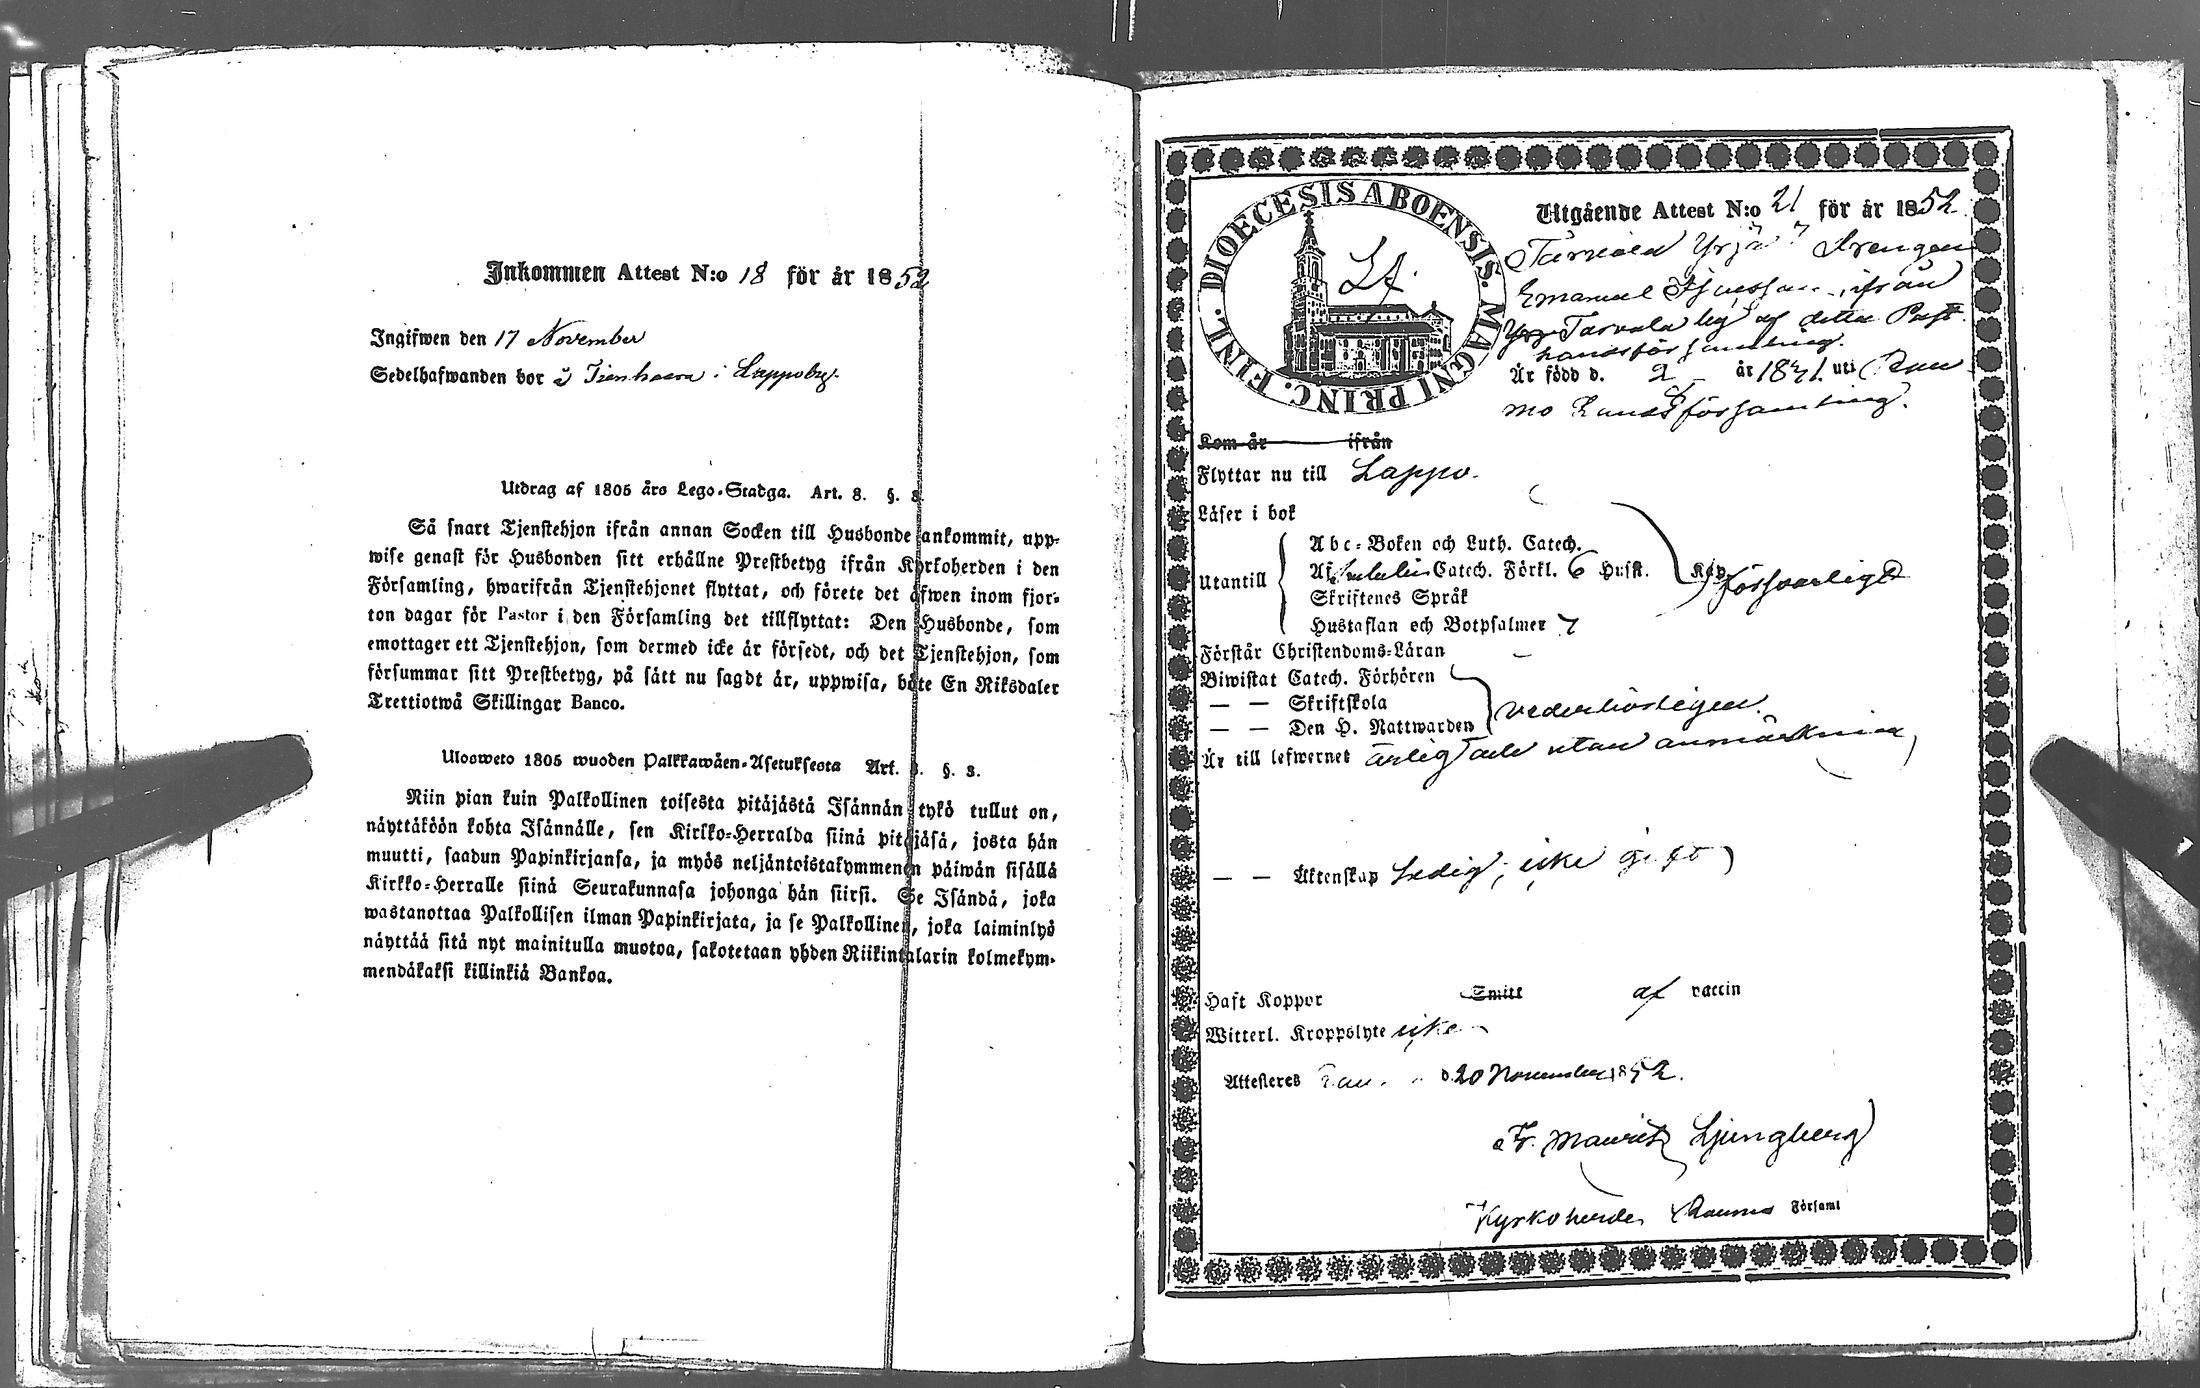 Inkommen Attest N:o 18 för år 1852
Ingifwen den 17 November
Sedelhafwanden bor å Tienhaara i Lappoby.
Utdrag af 1805 års Lego-Stadga. Art. 8. §. 3.
Så snart Tjenstehjon ifrån annan Socken till Husbonde ankommit, upp-
wise genast för Husbonden sitt erhållne Prestbetyg ifrån Kyrkoherden i den
Församling, hwarifrån Tjenstehjonet flyttat, och förete det äfwen inom fjor-
ton dagar för Pastor i den Församling det tillflyttat: Den Husbonde, som
emottager ett Tjenstehjon, som dermed icke är försedt, och det Tjenstehjon, som
försummar sitt Prestbetyg, på sätt nu sagdt är, uppwisa, böte En Riksdaler
Trettiotwå Skillingar Banco.
Ulosweto 1805 wuoden Palkkawäen-Asetuksesta Art. 8. §. 3.
Niin pian kuin Palkollinen toisesta pitäjästä Isännän tykö tullut on,
näyttäköön kohta Isännälle, sen Kirkko-Herralda siinä pitäjäsä, josta hän
muutti, saadun Papinkirjansa, ja myös neljäntoistakymmenen päiwän sisällä
Kirkko-Herralle siinä Seurakunnasa johonga hän siirsi. Se Isändä, joka
wastanottaa Palkollisen ilman Papinkirjata, ja se Palkollinen, joka laiminlyö
näyttää sitä nyt mainitulla muotoa, sakotetaan yhden Riikintalarin kolmekym-
mendäkaksi killinkiä Bankoa.
DIOECESIS ABOENSIS. MAGNI PRINC. FINL.
Lt.
Utgående Attest N:o 21 för år 1852
Yrjä Drengen
Emanuel ifrån
Tarvala by af detta Past.
landsförsamling.
Är född d. 2 år 1831. uti Rau
mo Landsförsamling.
Kom år ifrån
Flyttar nu till Lappo.
Läser i bok
Utantill
Abc-Boken och Luth. Catech.
Af Catech. Förkl. 6 Hufst. försvarligt
Skriftenes Språk
Hustaflan och Botpsalmer 7
Förstår Christendoms-Läran –
Biwistat Catech. Förhören
— — Skriftskola
— — Den H. Nattwarden vederbörligen.
Är till lefwernet ärlig och utan anmärkning
— — Äktenskap Ledig, icke gift
Haft Koppor Smitt af vaccin
Witterl. Kroppslyte icke
Attesteres d. 20 November 1852.
Fr. Mauritz Ljungberg
Kyrkoherde Raumo Församl